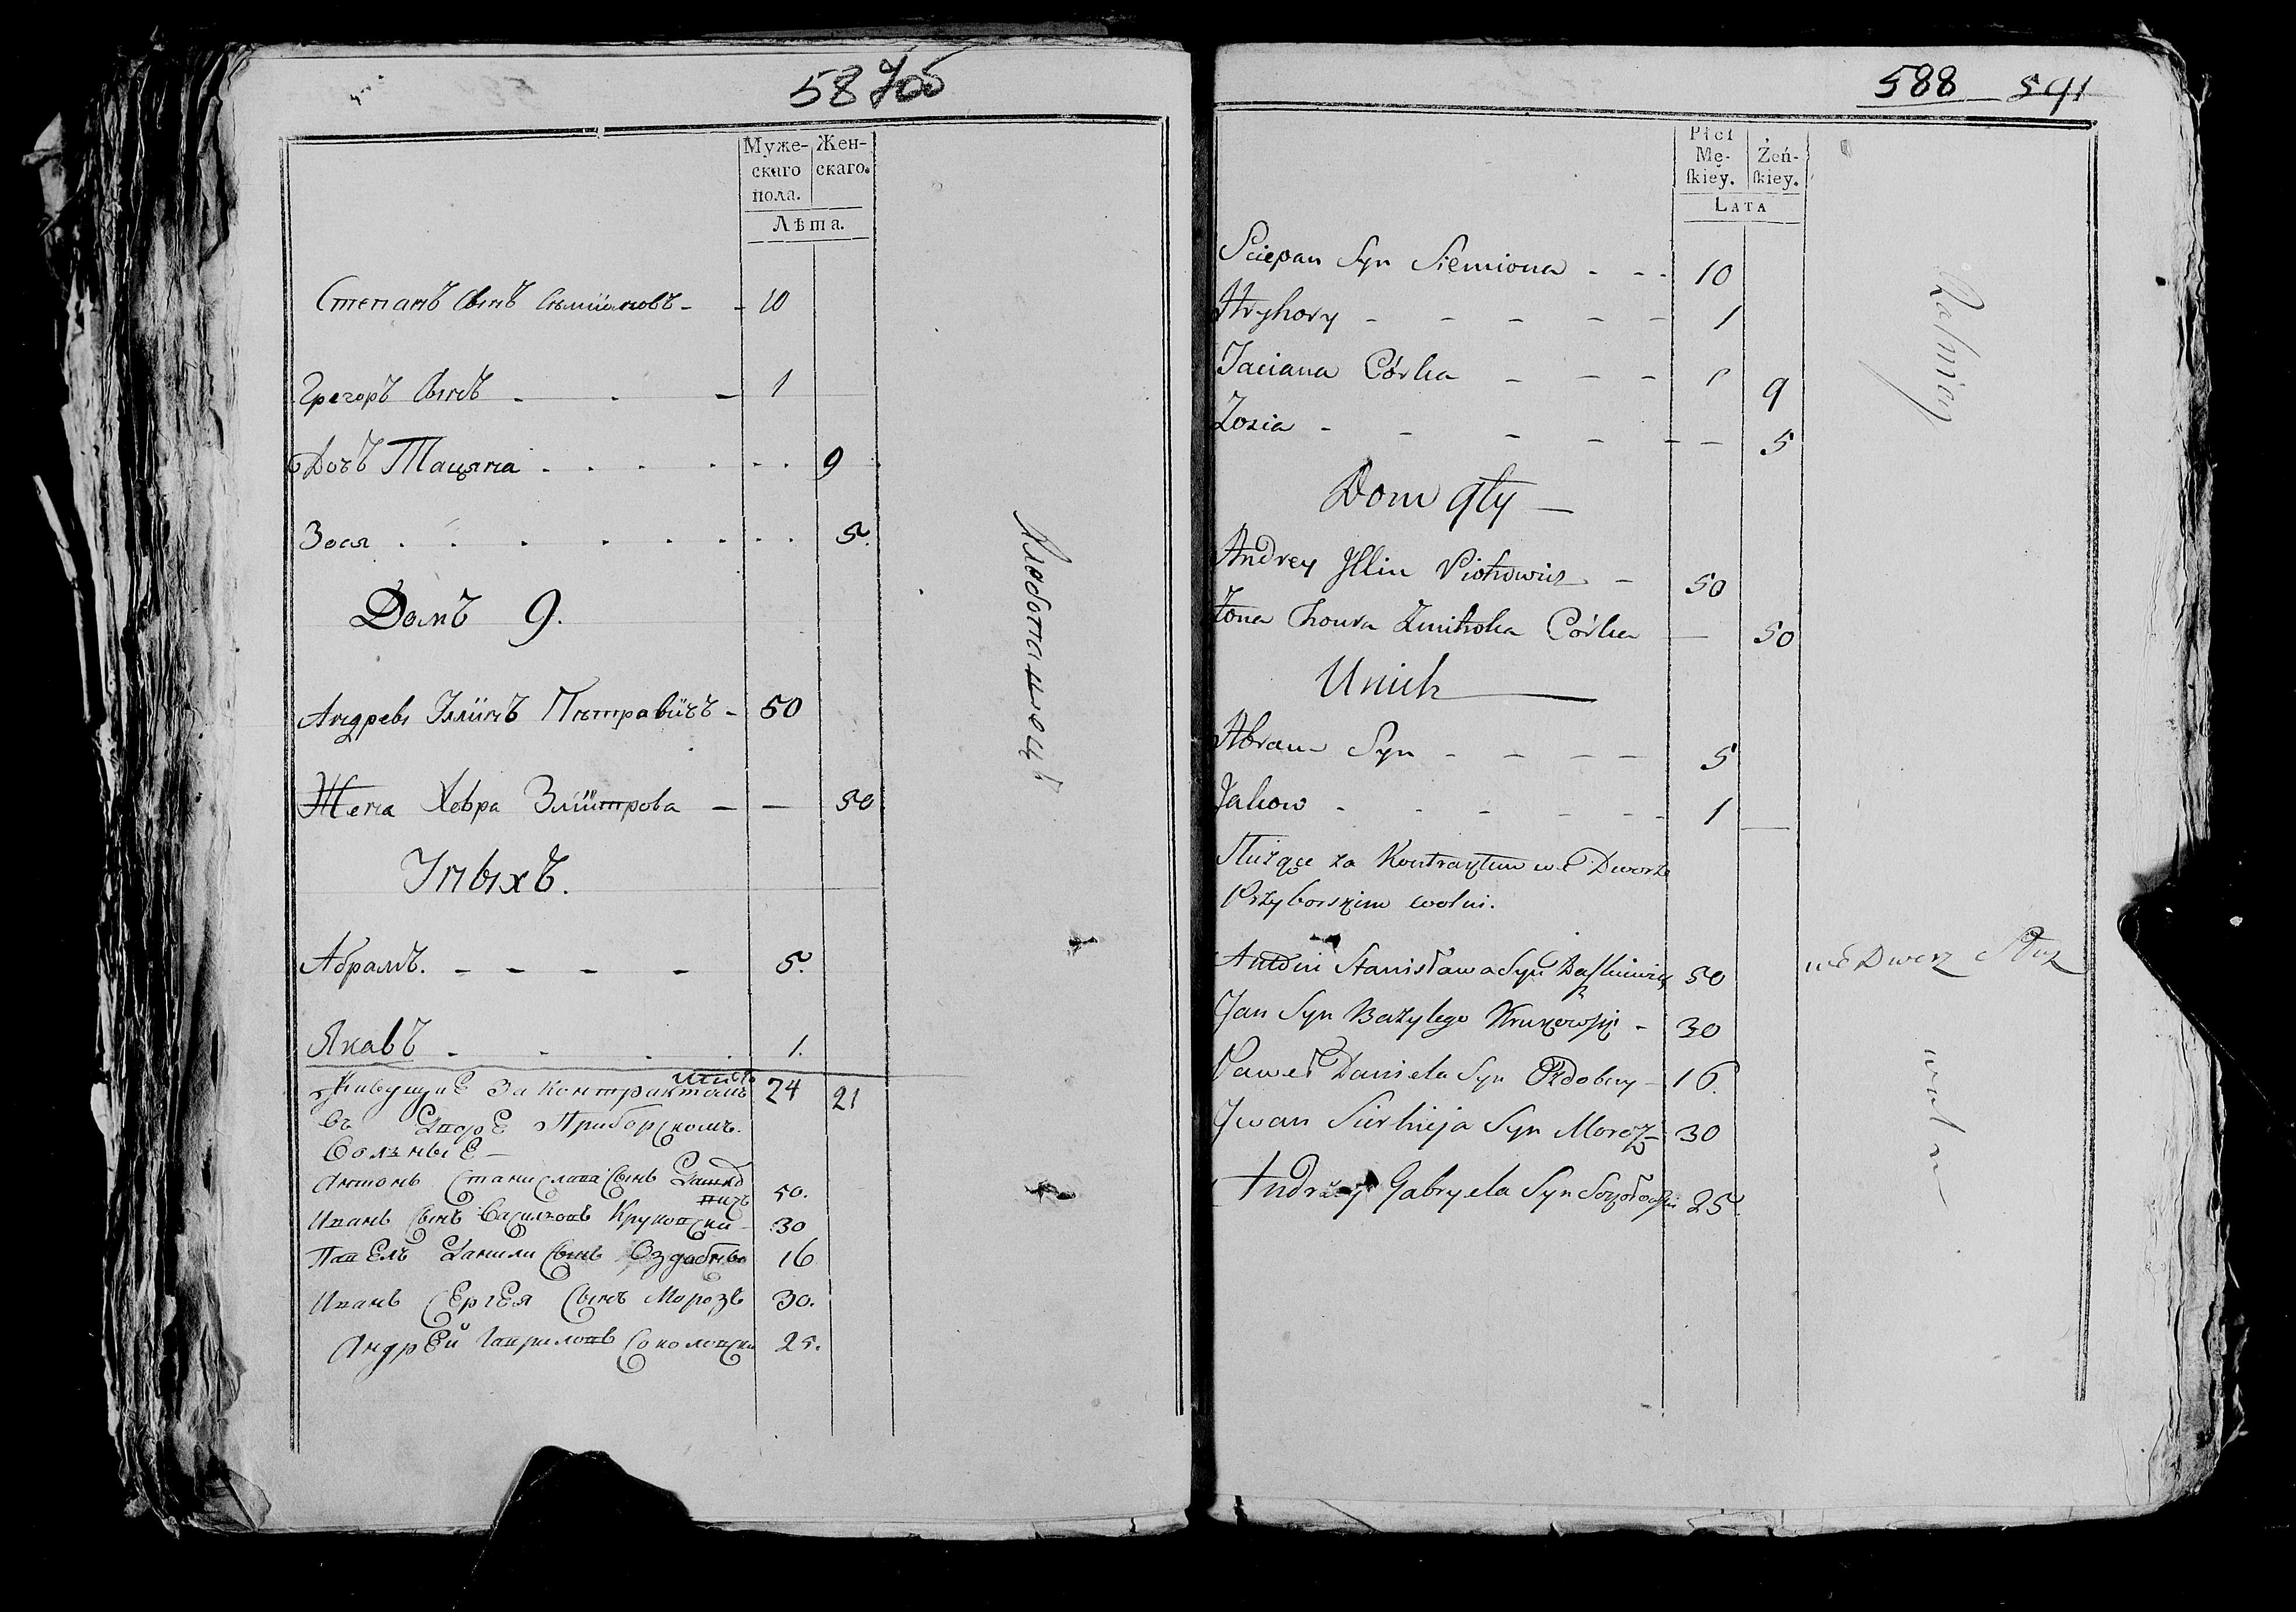 587об
Муже-
скаго
пола.
Жен-
скаго.
Лѣта.
Степанъ Сынъ Сѣмїоновъ - - 10
Грегоръ Сынъ - - - 1
Дочъ Тацяна . . . . . . . 9
Зося . . . . . . . . . 5.
Домъ 9.
Андреи Иллїнъ Пѣтравїчъ - 50
Жена Ховра Змїтрова - - 50
Унихъ.
Абрамъ. - - - - 5.
Якавъ - - - - 1.
24 21
Живущие За контрактомъ
въ Дворе Приборскомъ.
Волные -
Антонъ Станислава Сынъ 50.
Иванъ Сынъ Василювъ Круковски - 30
Павелъ Данили Сынъ Оздобны 16
Иванъ Сергея Сынъ Морозъ 30.
Андрей Гавриловъ Соколовски 25.
588 591
Płci
Mę-
ſkiey.
Żeń-
ſkiey.
LATA
Sciepan Syn Siemiona - - - 10
Hryhory - - - - - 1
Taciana Córka - - - 9
Zosia - - - - - - 5
Dom 9ty —
Andrey Jllin Piotrowicz - 50
Żona Howra Zmitroka Córka — 50
Unich
Abram Syn - - - - 5
Jakow - - - - - - 1
Służące za Kontraktem we Dworze
Przyborskim wolni.
Antoni Stanisława Syn 50
Jan Syn Bazylego Krukowski - 30
Paweł Daniela Syn Ozdobny - 16.
Jwan Sierhieja Syn Moroz - 30
Andrzej Gabryela Syn Sokołowski 25.
we Dworz Służ
wolni
Rolnicy